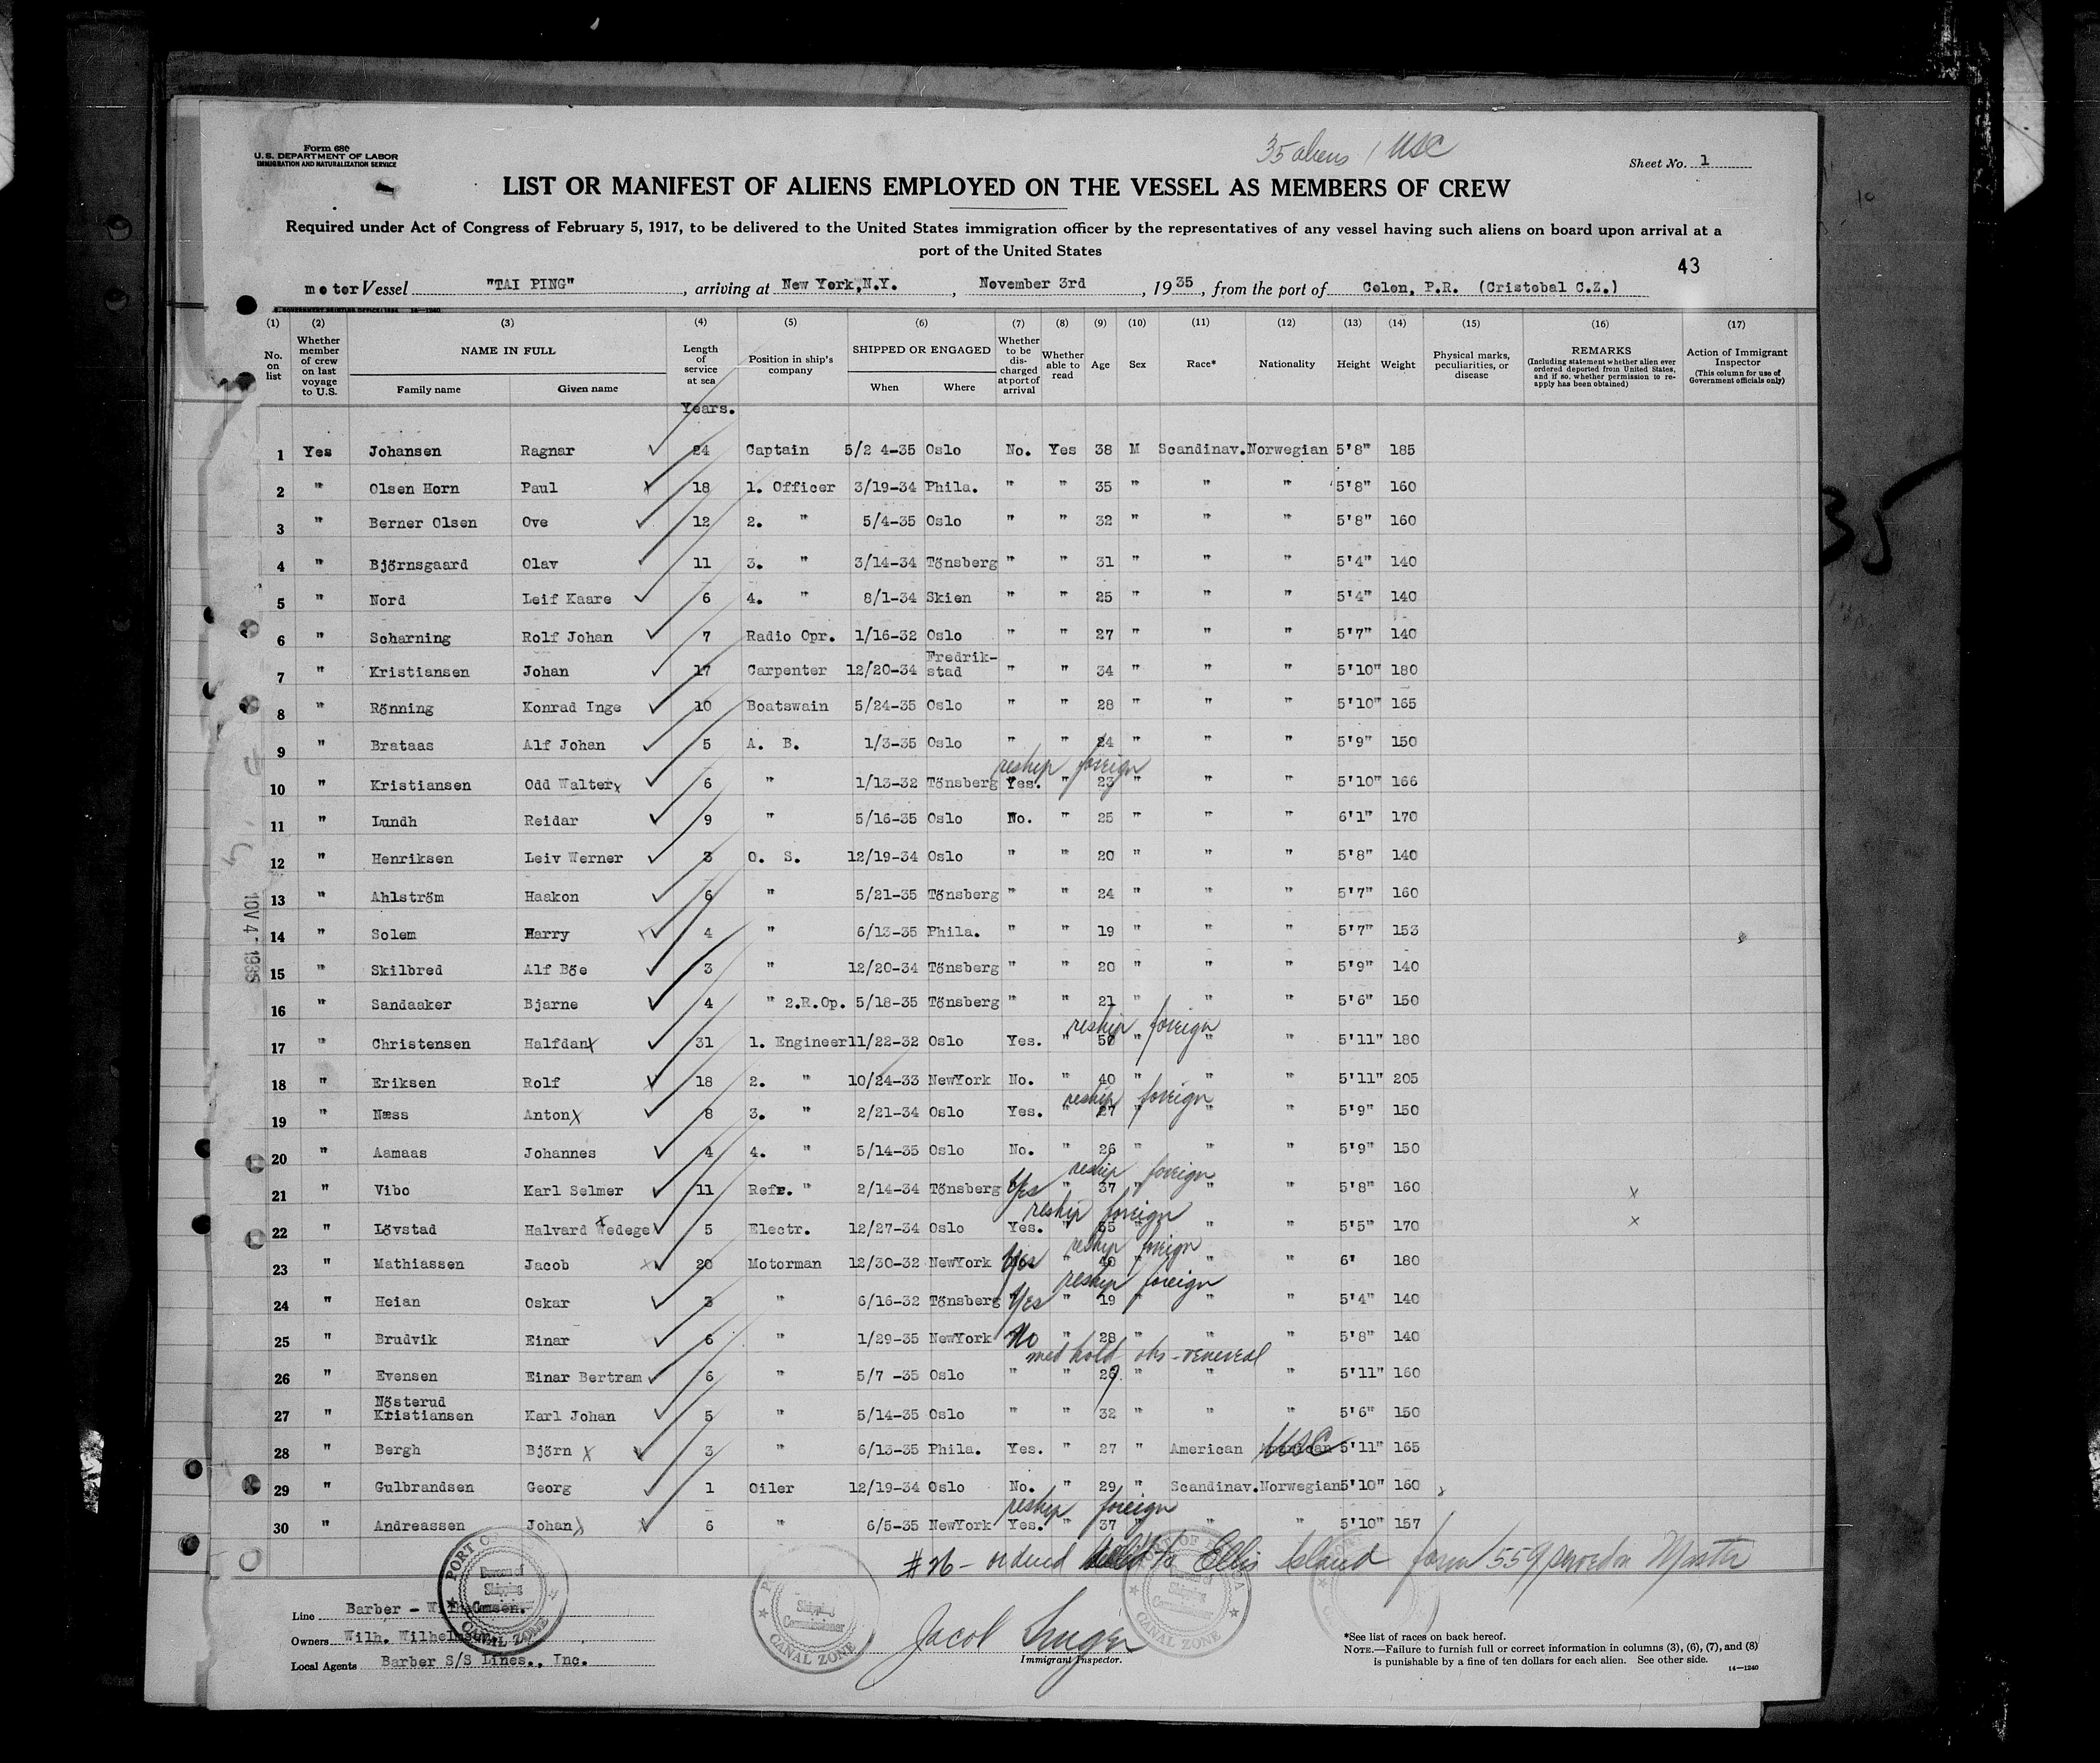 Form 680
U. S. DEPARTMENT OF LABOR
IMMIGRATION AND NATURALIZATION SERVICE
35 aliens 1 USC
Sheet No. 1
LIST OR MANIFEST OF ALIENS EMPLOYED ON THE VESSEL AS MEMBERS OF CREW
Required under Act of Congress of February 5, 1917, to be delivered to the United States immigration officer by the representatives of any vessel having such aliens on board upon arrival at a
port of the United States
43
motor Vessel "TAI PING" , arriving at New York,N.Y. , November 3rd , 1935, from the port of Colon, P.R. (Cristobal C.Z.)
(1) (2) (3) (4) (5) (6) (7) (8) (9) (10) (11) (12) (13) (14) (15) (16) (17)
No. on list
Whether member of crew on last voyage to U.S.
NAME IN FULL
Family name Given name
Length of service at sea
Position in ship's company
SHIPPED OR ENGAGED
When Where
Whether to be discharged at port of arrival
Whether able to read
Age Sex Race* Nationality Height Weight
Physical marks, peculiarities, or disease
REMARKS
(Including statement whether alien ever ordered deported from United States, and if so, whether permission to reapply has been obtained)
Action of Immigrant Inspector
(This column for use of Government officials only)
Years.
1 Yes Johansen Ragnar 24 Captain 5/2 4-35 Oslo No. Yes 38 M Scandinav. Norwegian 5'8" 185
2 " Olsen Horn Paul 18 1. Officer 3/19-34 Phila. " " 35 " " " 5'8" 160
3 " Berner Olsen Ove 12 2. " 5/4-35 Oslo " " 32 " " " 5'8" 160
4 " Björnsgaard Olav 11 3. " 3/14-34 Tönsberg " " 31 " " " 5'4" 140
5 " Nord Leif Kaare 6 4. " 8/1-34 Skien " " 25 " " " 5'4" 140
6 " Scharning Rolf Johan 7 Radio Opr. 1/16-32 Oslo " " 27 " " " 5'7" 140
7 " Kristiansen Johan 17 Carpenter 12/20-34 Fredrik-stad " " 34 " " " 5'10" 180
8 " Rönning Konrad Inge 10 Boatswain 5/24-35 Oslo " " 28 " " " 5'10" 165
9 " Brataas Alf Johan 5 A. B. 1/3-35 Oslo " " 24 " " " 5'9" 150
reship foreign
10 " Kristiansen Odd Walter 6 " 1/13-32 Tönsberg Yes. " 23 " " " 5'10" 166
11 " Lundh Reidar 9 " 5/16-35 Oslo No. " 25 " " " 6'1" 170
12 " Henriksen Leiv Werner 3 O. S. 12/19-34 Oslo " " 20 " " " 5'8" 140
13 " Ahlström Haakon 6 " 5/21-35 Tönsberg " " 24 " " " 5'7" 160
14 " Solem Harry 4 " 6/13-35 Phila. " " 19 " " " 5'7" 153
15 " Skilbred Alf Böe 3 " 12/20-34 Tönsberg " " 20 " " " 5'9" 140
16 " Sandaaker Bjarne 4 " 2.R.Op. 5/18-35 Tönsberg " " 21 " " " 5'6" 150
reship foreign
17 " Christensen Halfdan 31 1. Engineer 11/22-32 Oslo Yes. " 50 " " " 5'11" 180
18 " Eriksen Rolf 18 2. " 10/24-33 NewYork No. " 40 " " " 5'11" 205
reship foreign
19 " Næss Anton 8 3. " 2/21-34 Oslo Yes. " 27 " " " 5'9" 150
20 " Aamaas Johannes 4 4. " 5/14-35 Oslo No. " 26 " " " 5'9" 150
reship foreign
21 " Vibo Karl Selmer 11 Refr. " 2/14-34 Tönsberg Yes " 37 " " " 5'8" 160 x
reship foreign
22 " Lövstad Halvard Wedege 5 Electr. 12/27-34 Oslo Yes. " 55 " " " 5'5" 170 x
reship foreign
23 " Mathiassen Jacob 20 Motorman 12/30-32 NewYork Yes " 40 " " " 6' 180
reship foreign
24 " Heian Oskar 3 " 6/16-32 Tönsberg Yes " 19 " " " 5'4" 140
25 " Brudvik Einar 6 " 1/29-35 NewYork No " 28 " " " 5'8" 140
med hold obs - venereal
26 " Evensen Einar Bertram 6 " 5/7 -35 Oslo " " 26 " " " 5'11" 160
27 " Nösterud Kristiansen Karl Johan 5 " 5/14-35 Oslo " " 32 " " " 5'6" 150
28 " Bergh Björn 3 " 6/13-35 Phila. Yes. " 27 " American American USC 5'11" 165
29 " Gulbrandsen Georg 1 Oiler 12/19-34 Oslo No. " 29 " Scandinav. Norwegian 5'10" 160
reship foreign
30 " Andreassen Johan 6 " 6/5-35 NewYork Yes. " 37 " " " 5'10" 157
#26 - ordered to Ellis Island form 559 served on Master
Line Barber - Wilhelmsen.
Owners Wilh. Wilhelmsen.
Local Agents Barber S/S Lines., Inc.
Bureau of Shipping Commissioner
CANAL ZONE
Shipping Commissioner
CANAL ZONE
Bureau of Shipping Commissioner
CANAL ZONE
Immigrant Inspector.
*See list of races on back hereof.
NOTE.—Failure to furnish full or correct information in columns (3), (6), (7), and (8)
is punishable by a fine of ten dollars for each alien. See other side.
14—1240
35